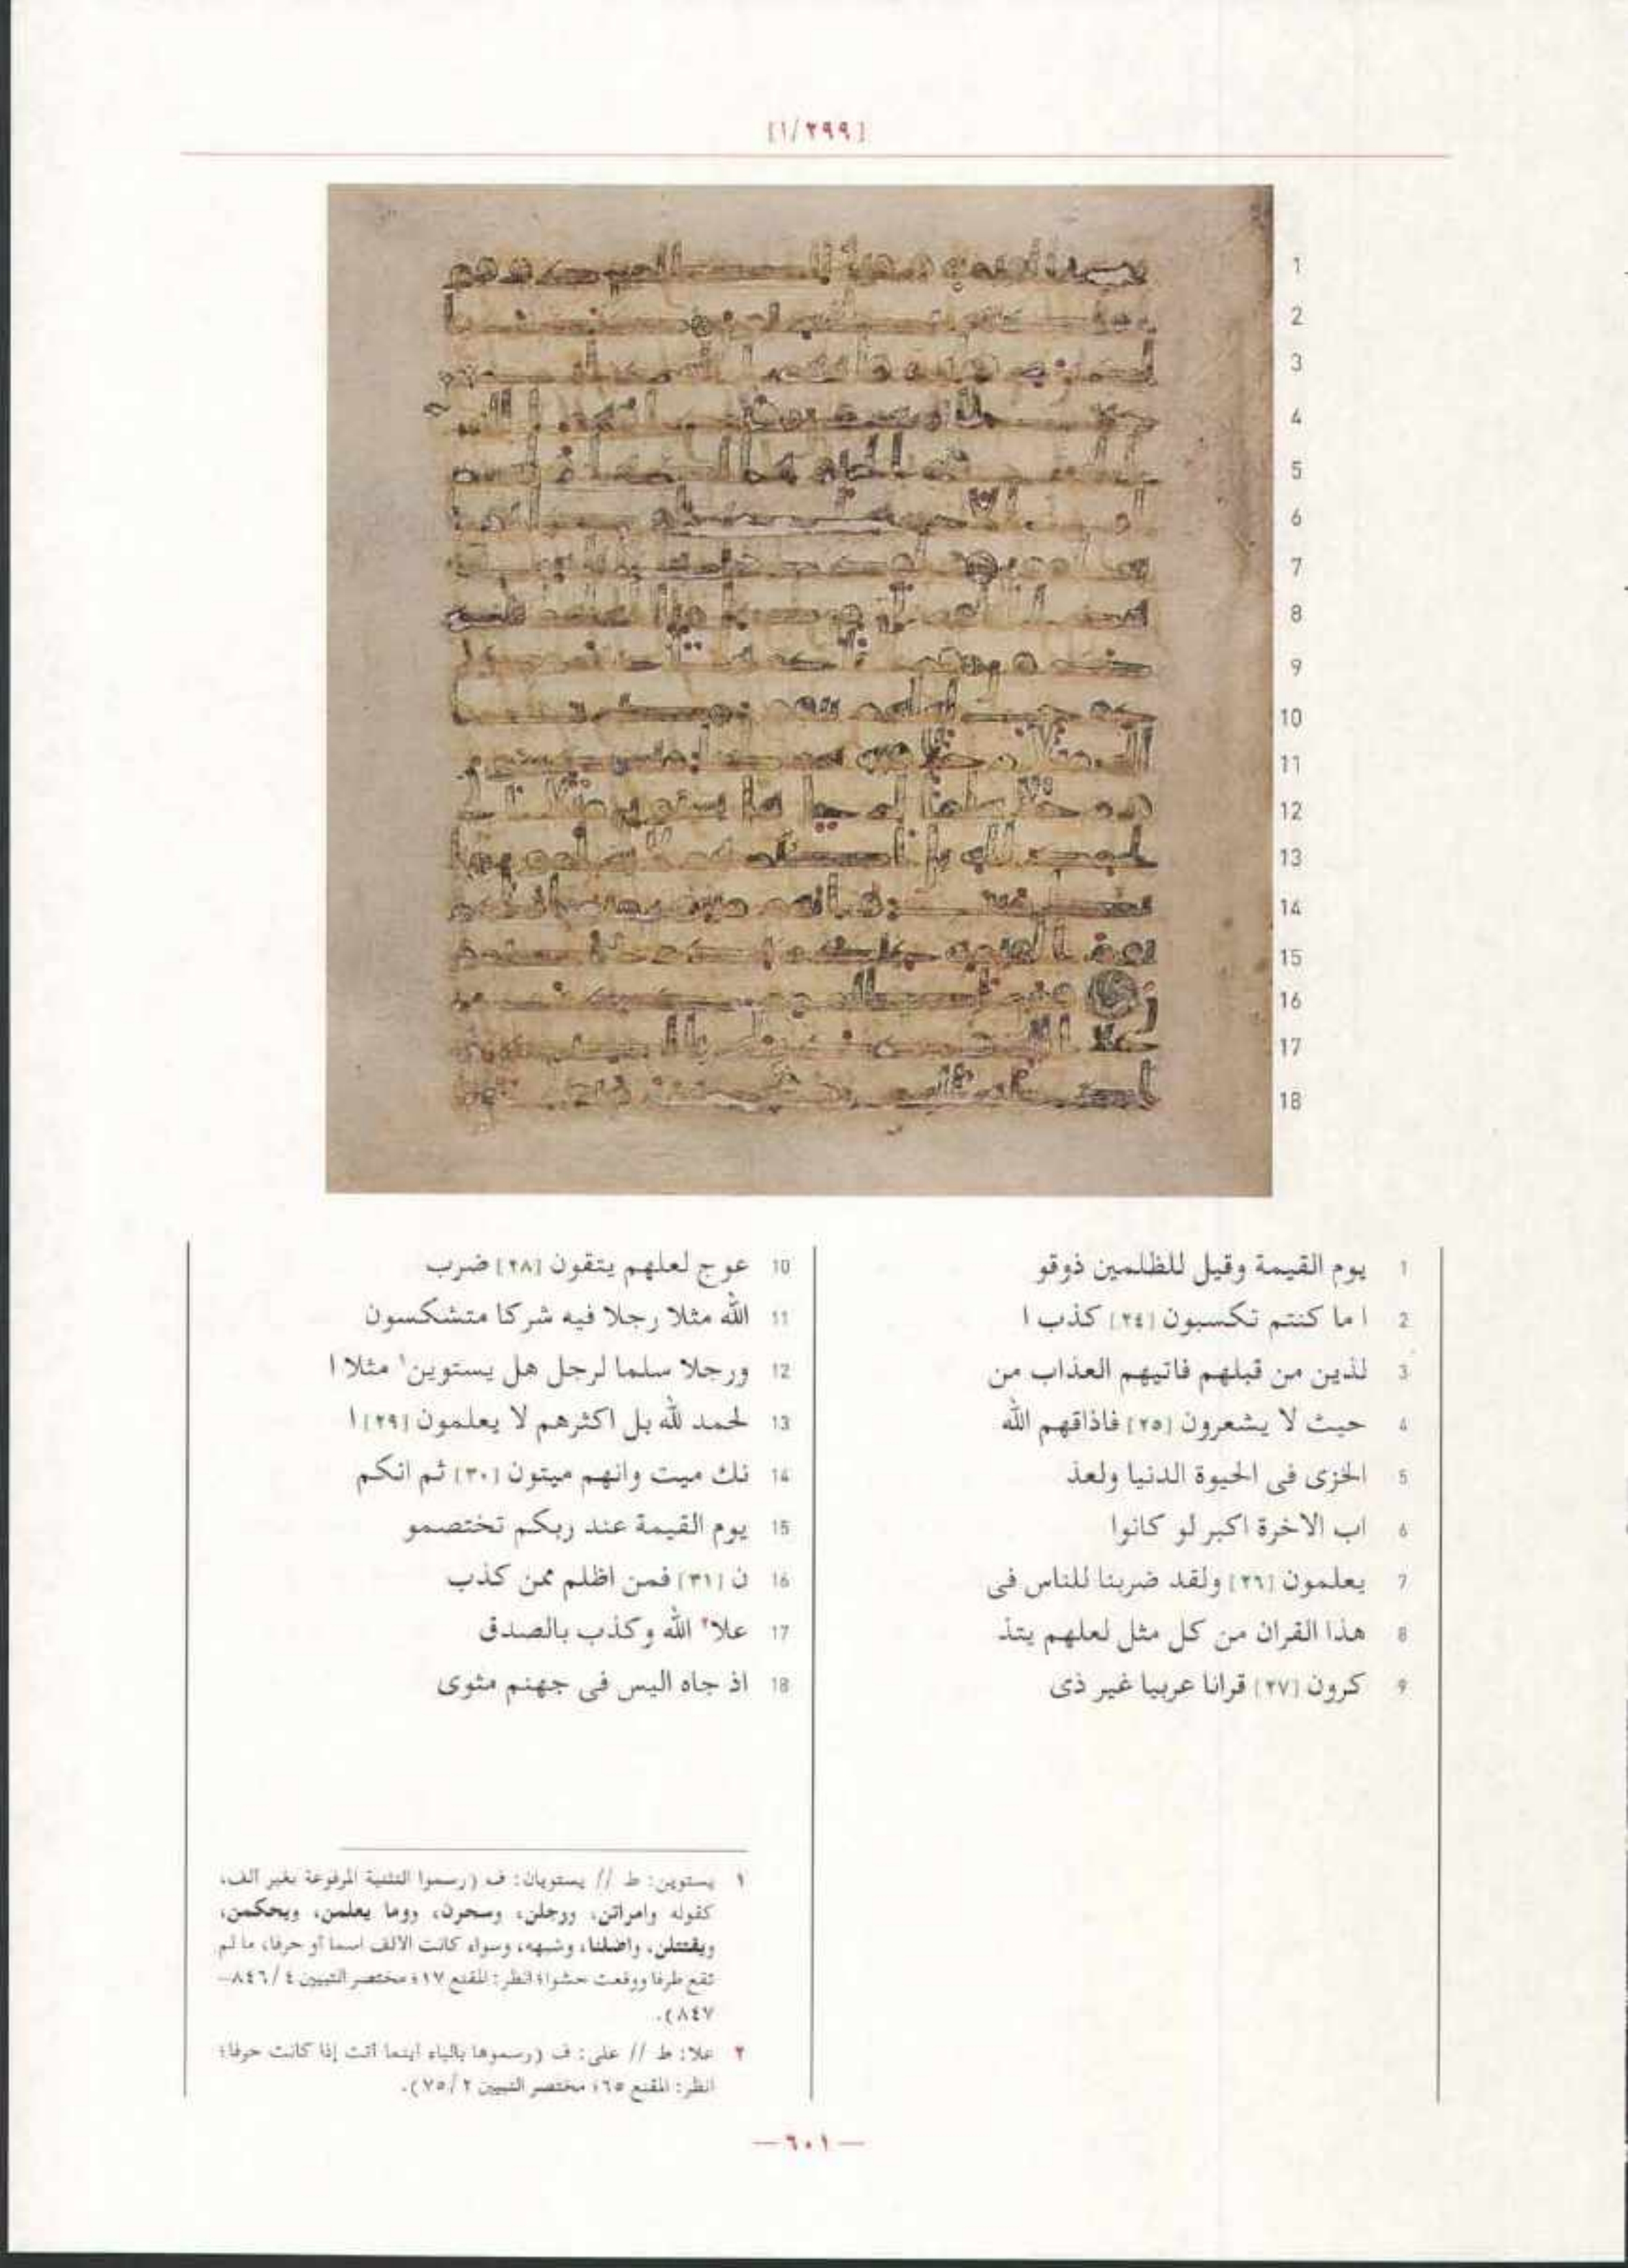 [١/٢٩٩]
1 يوم القيمة وقيل للظلمين ذوقو
2 ا ما كنتم تكسبون [٢٤] كذب ا
3 لذين من قبلهم فاتيهم العذاب من
4 حيث لا يشعرون [٢٥] فاذاقهم الله
5 الخزى فى الحيوة الدنيا ولعذ
6 اب الاخرة اكبر لو كانوا
7 يعلمون [٢٦] ولقد ضربنا للناس فى
8 هذا القران من كل مثل لعلهم يتذ
9 كرون [٢٧] قرانا عربيا غير ذى
10 عوج لعلهم يتقون [٢٨] ضرب
11 الله مثلا رجلا فيه شركا متشكسون
12 ورجلا سلما لرجل هل يستوين١ مثلا ا
13 لحمد لله بل اكثرهم لا يعلمون [٢٩] ا
14 نك ميت وانهم ميتون [٣٠] ثم انكم
15 يوم القيمة عند ربكم تختصمو
16 ن [٣١] فمن اظلم ممن كذب
17 علا٢ الله وكذب بالصدق
18 اذ جاه اليس فى جهنم مثوى
١ يستوين: ط // يستويان: ف (رسموا التثنية المرفوعة بغير ألف،
كقوله وامراتن، ورجلن، وسحرن، ووما يعلمن، ويحكمن،
ويقتتلن، واضلنا، وشبهه، وسواء كانت الألف اسما أو حرفا، ما لم
تقع طرفا ووقعت حشوا؛ انظر: المقنع ١٧؛ مختصر التبيين ٤/٨٤٦–
٨٤٧).
٢ علا: ط // على: ف (رسموها بالياء أينما أتت إذا كانت حرفا؛
انظر: المقنع ٦٥؛ مختصر التبيين ٢/٧٥).
— ٦٠١ —